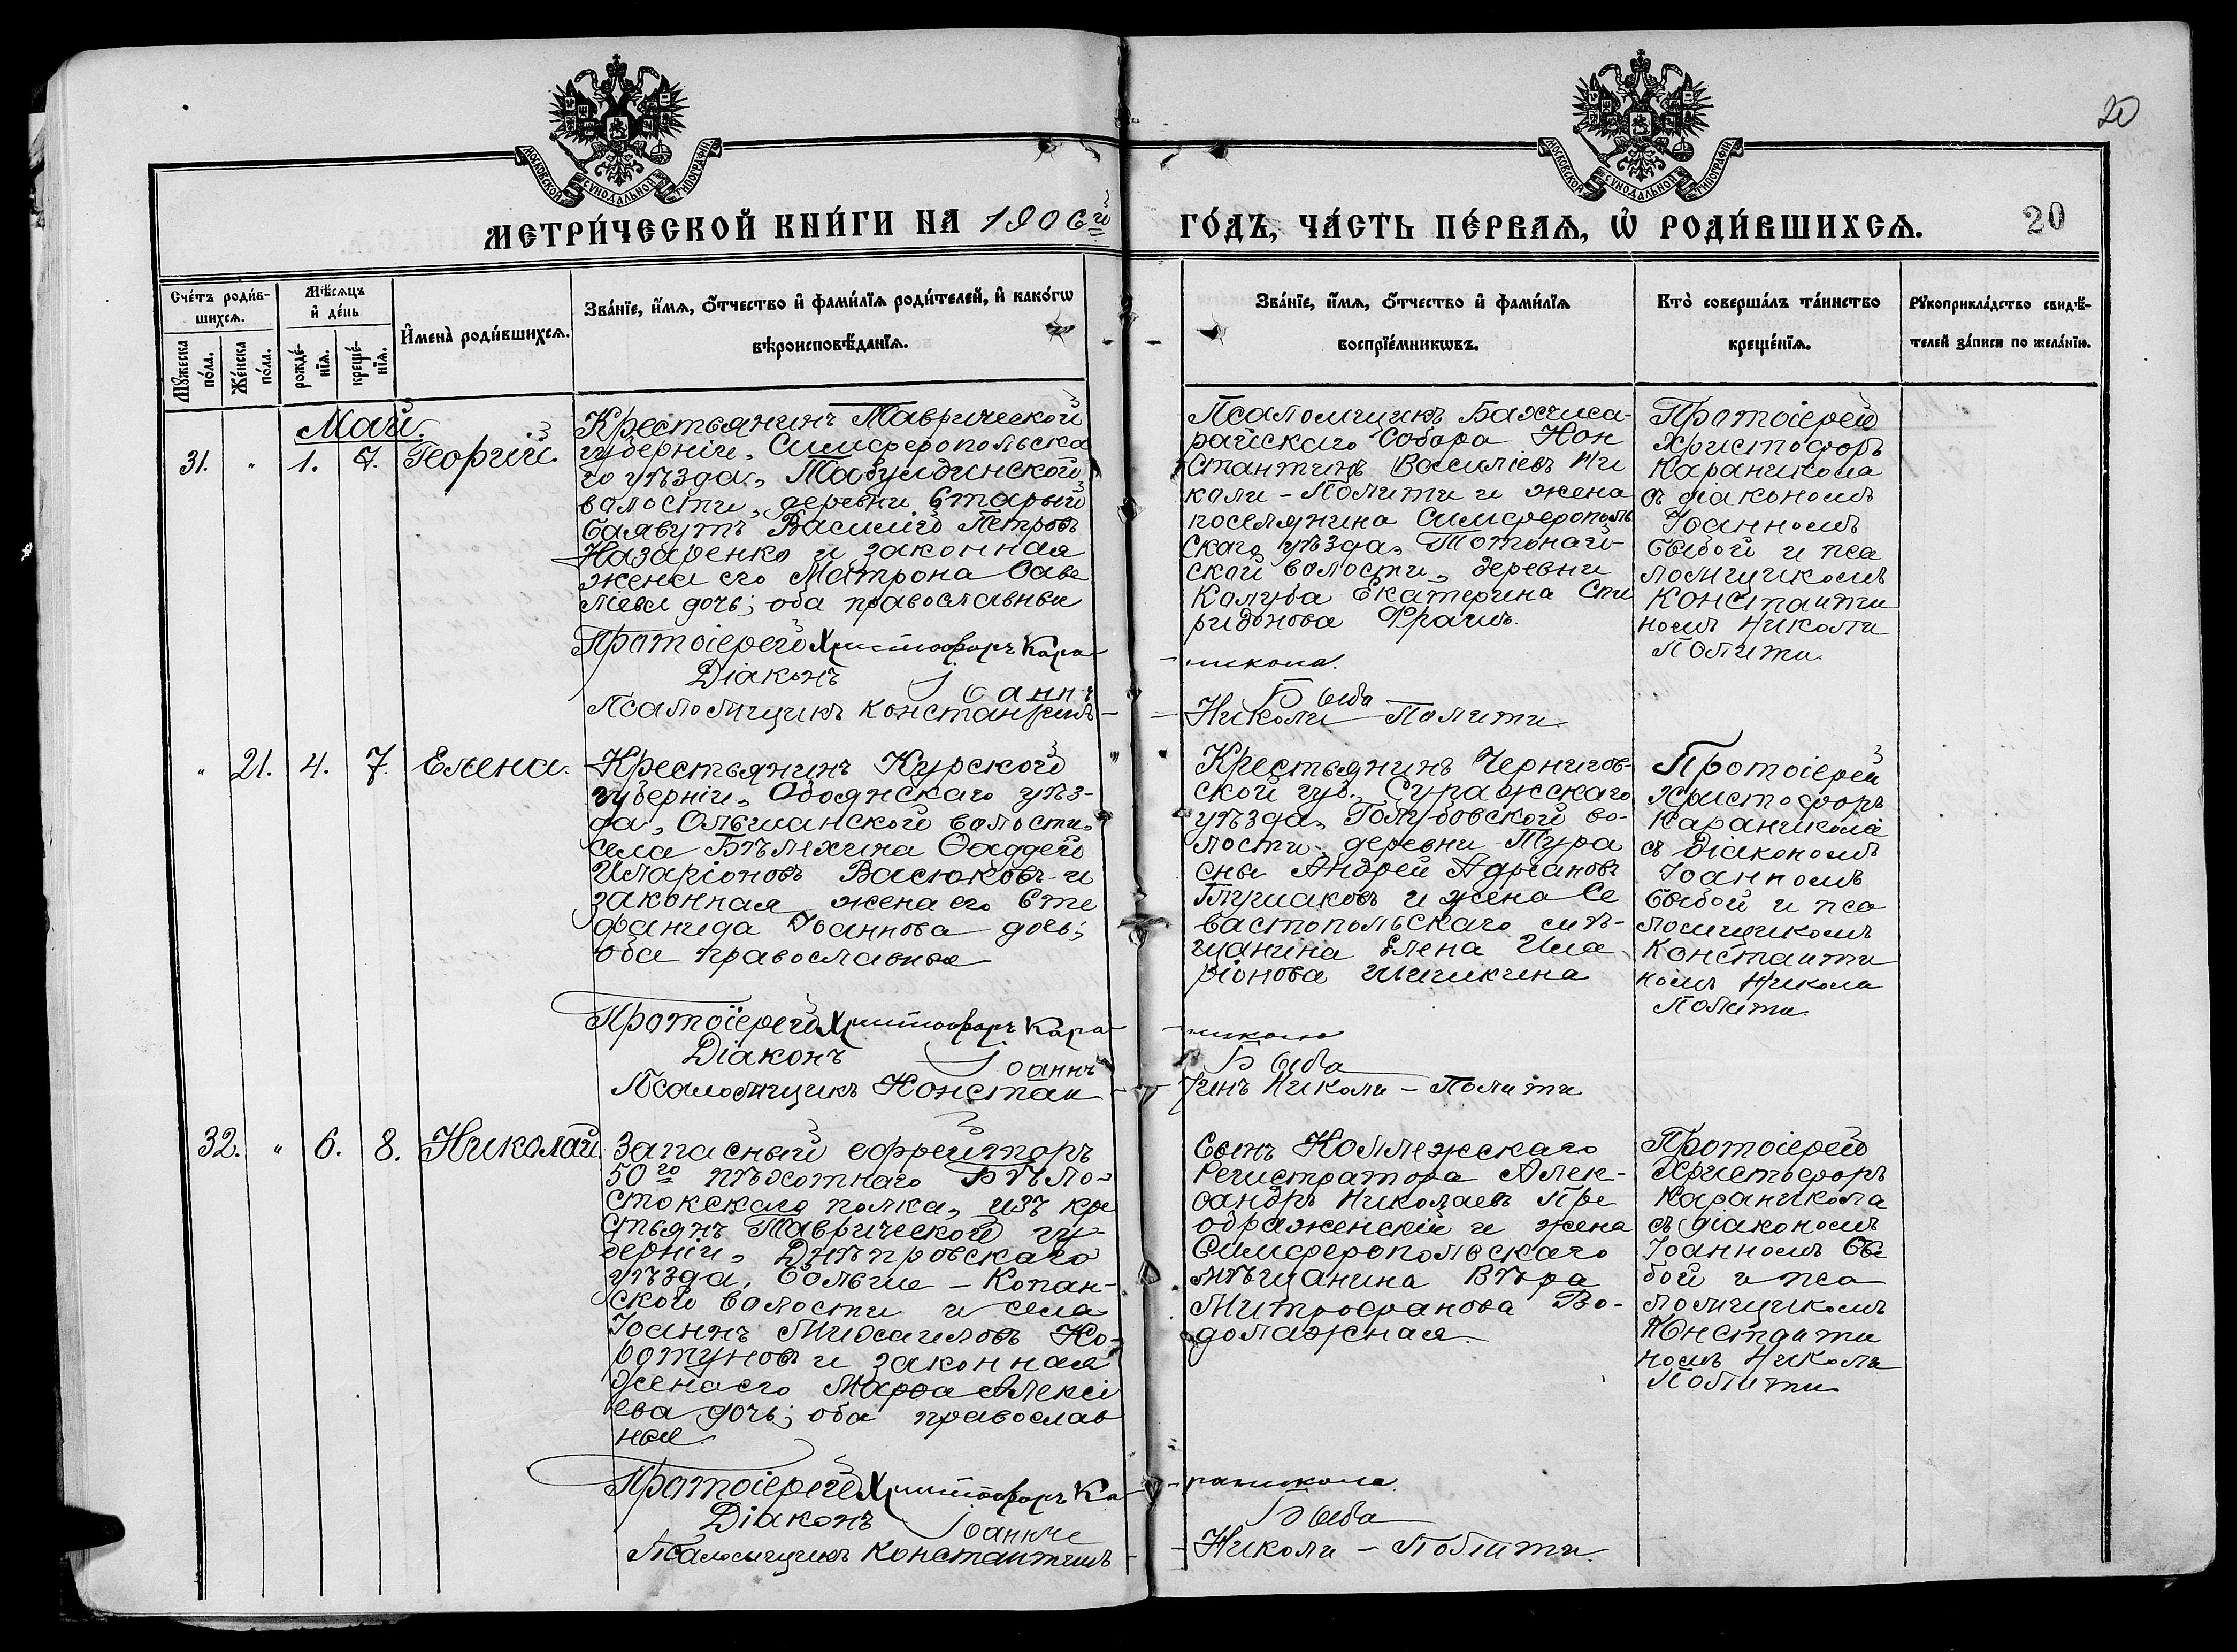 20
МОСКОВСКОЙ СѴНОДАЛЬНОЙ ТИПОГРАФІИ
МОСКОВСКОЙ СѴНОДАЛЬНОЙ ТИПОГРАФІИ
МЕТРИ́ЧЕСКОЙ КНИ́ГИ НА 1906й
ГО́ДЪ, ЧА́СТЬ ПЕ́РВАѦ, Ѡ҆ РОДИ́ВШИХСѦ.
20
Сче́тъ роди́в-
шихсѧ.
Мꙋжеска по́ла.
Же́нска по́ла.
Мѣ́сѧцъ
и҆ де́нь
рожде́-
нїѧ.
креще́-
нїѧ.
И҆мена̀ роди́вшихсѧ.
Зва́нїе, и҆́мѧ, ѻ҆́тчество и҆ фами́лїѧ роди́телей, и҆ како́гѡ
вѣроисповѣ́данїѧ.
Зва́нїе, и҆́мѧ, ѻ҆́тчество и҆ фами́лїѧ
воспрїе́мникѡвъ.
Кто̀ соверша́лъ та́инство
креще́нїѧ.
Рꙋкоприкла́дство свидѣ́-
телей за́писи по жела́нїю.
Май.
31. " 1. 7. Георгій.
Крестьянинъ Таврической
губерніи, Симферопольска
го уѣзда, Табулдинской
волости, деревни Старый
Саявутъ Василій Петровъ
Назаренко и законная
жена его Матрона Саве
ліева дочь; оба православные
Псаломщикъ Бахчиса-
райскаго Собора Кон
стантинъ Василіевъ Ни
коли - Полити и жена
поселянина Симферополь
скаго уѣзда, Тотонай-
ской волости, деревни
Калуба Екатерина Спи
ридонова Фраимъ.
Протоіерей
Христофоръ
Караникола
съ діакономъ
Іоанномъ
Быбой и пса
ломщикомъ
Константи
номъ Николи
Полити.
Протоіерей Христофоръ Кара-
-никола.
Діаконъ Іоаннъ
Быба
Псаломщикъ Константинъ -
- Николи - Полити.
" 21. 4. 7. Елена.
Крестьянинъ Курской
губерніи, Обоянскаго уѣз-
да, Ольшанской волости,
села Бѣлехина Фаддей
Иларіоновъ Васюковъ и
законная жена его Сте
фанида Іоаннова дочь;
оба православные
Крестьянинъ Чернигов-
ской губ. Суражскаго
уѣзда, Голубовской во-
лости, деревни Тура
сны Андрей Адріановъ
Глушаковъ и жена Се
вастопольскаго мѣ-
щанина Елена Ила
ріонова Шишкина
Протоіерей
Христофоръ
Караникола
съ Діакономъ
Іоанномъ
Быбой и пса
ломщикомъ
Константи
номъ Никола
Полити.
Протоіерей Христофоръ Кара-
-никола
Діаконъ Іоаннъ
Быба
Псаломщикъ Констан -
- тинъ Николи - Полити
32. " 6. 8. Николай.
Запасный ефрейторъ
50го пѣхотнаго Бѣло-
стокскаго полка, изъ кре
стьянъ Таврической гу-
берніи, Днѣпровскаго
уѣзда, Больше - Копан-
ской волости и села
Іоаннъ Михаиловъ Ко-
ротуновъ и законная
жена его Марфа Алексі
ева дочь; оба православ
ные.
Сынъ Коллежскаго
Регистратора Алек-
сандръ Николаевъ Пре
ображенскій и жена
Симферопольскаго
мѣщанина Вѣра
Митрофанова Во-
долажная
Протоіерей
Христофоръ
Караникола
съ діакономъ
Іоанномъ Бы
бой и пса
ломщикомъ
Константи
номъ Никола
Полити
Протоіерей Христофоръ Ка-
-раникола.
Діаконъ Іоаннъ
Быба
Псаломщикъ Константинъ -
- Николи - Полити.